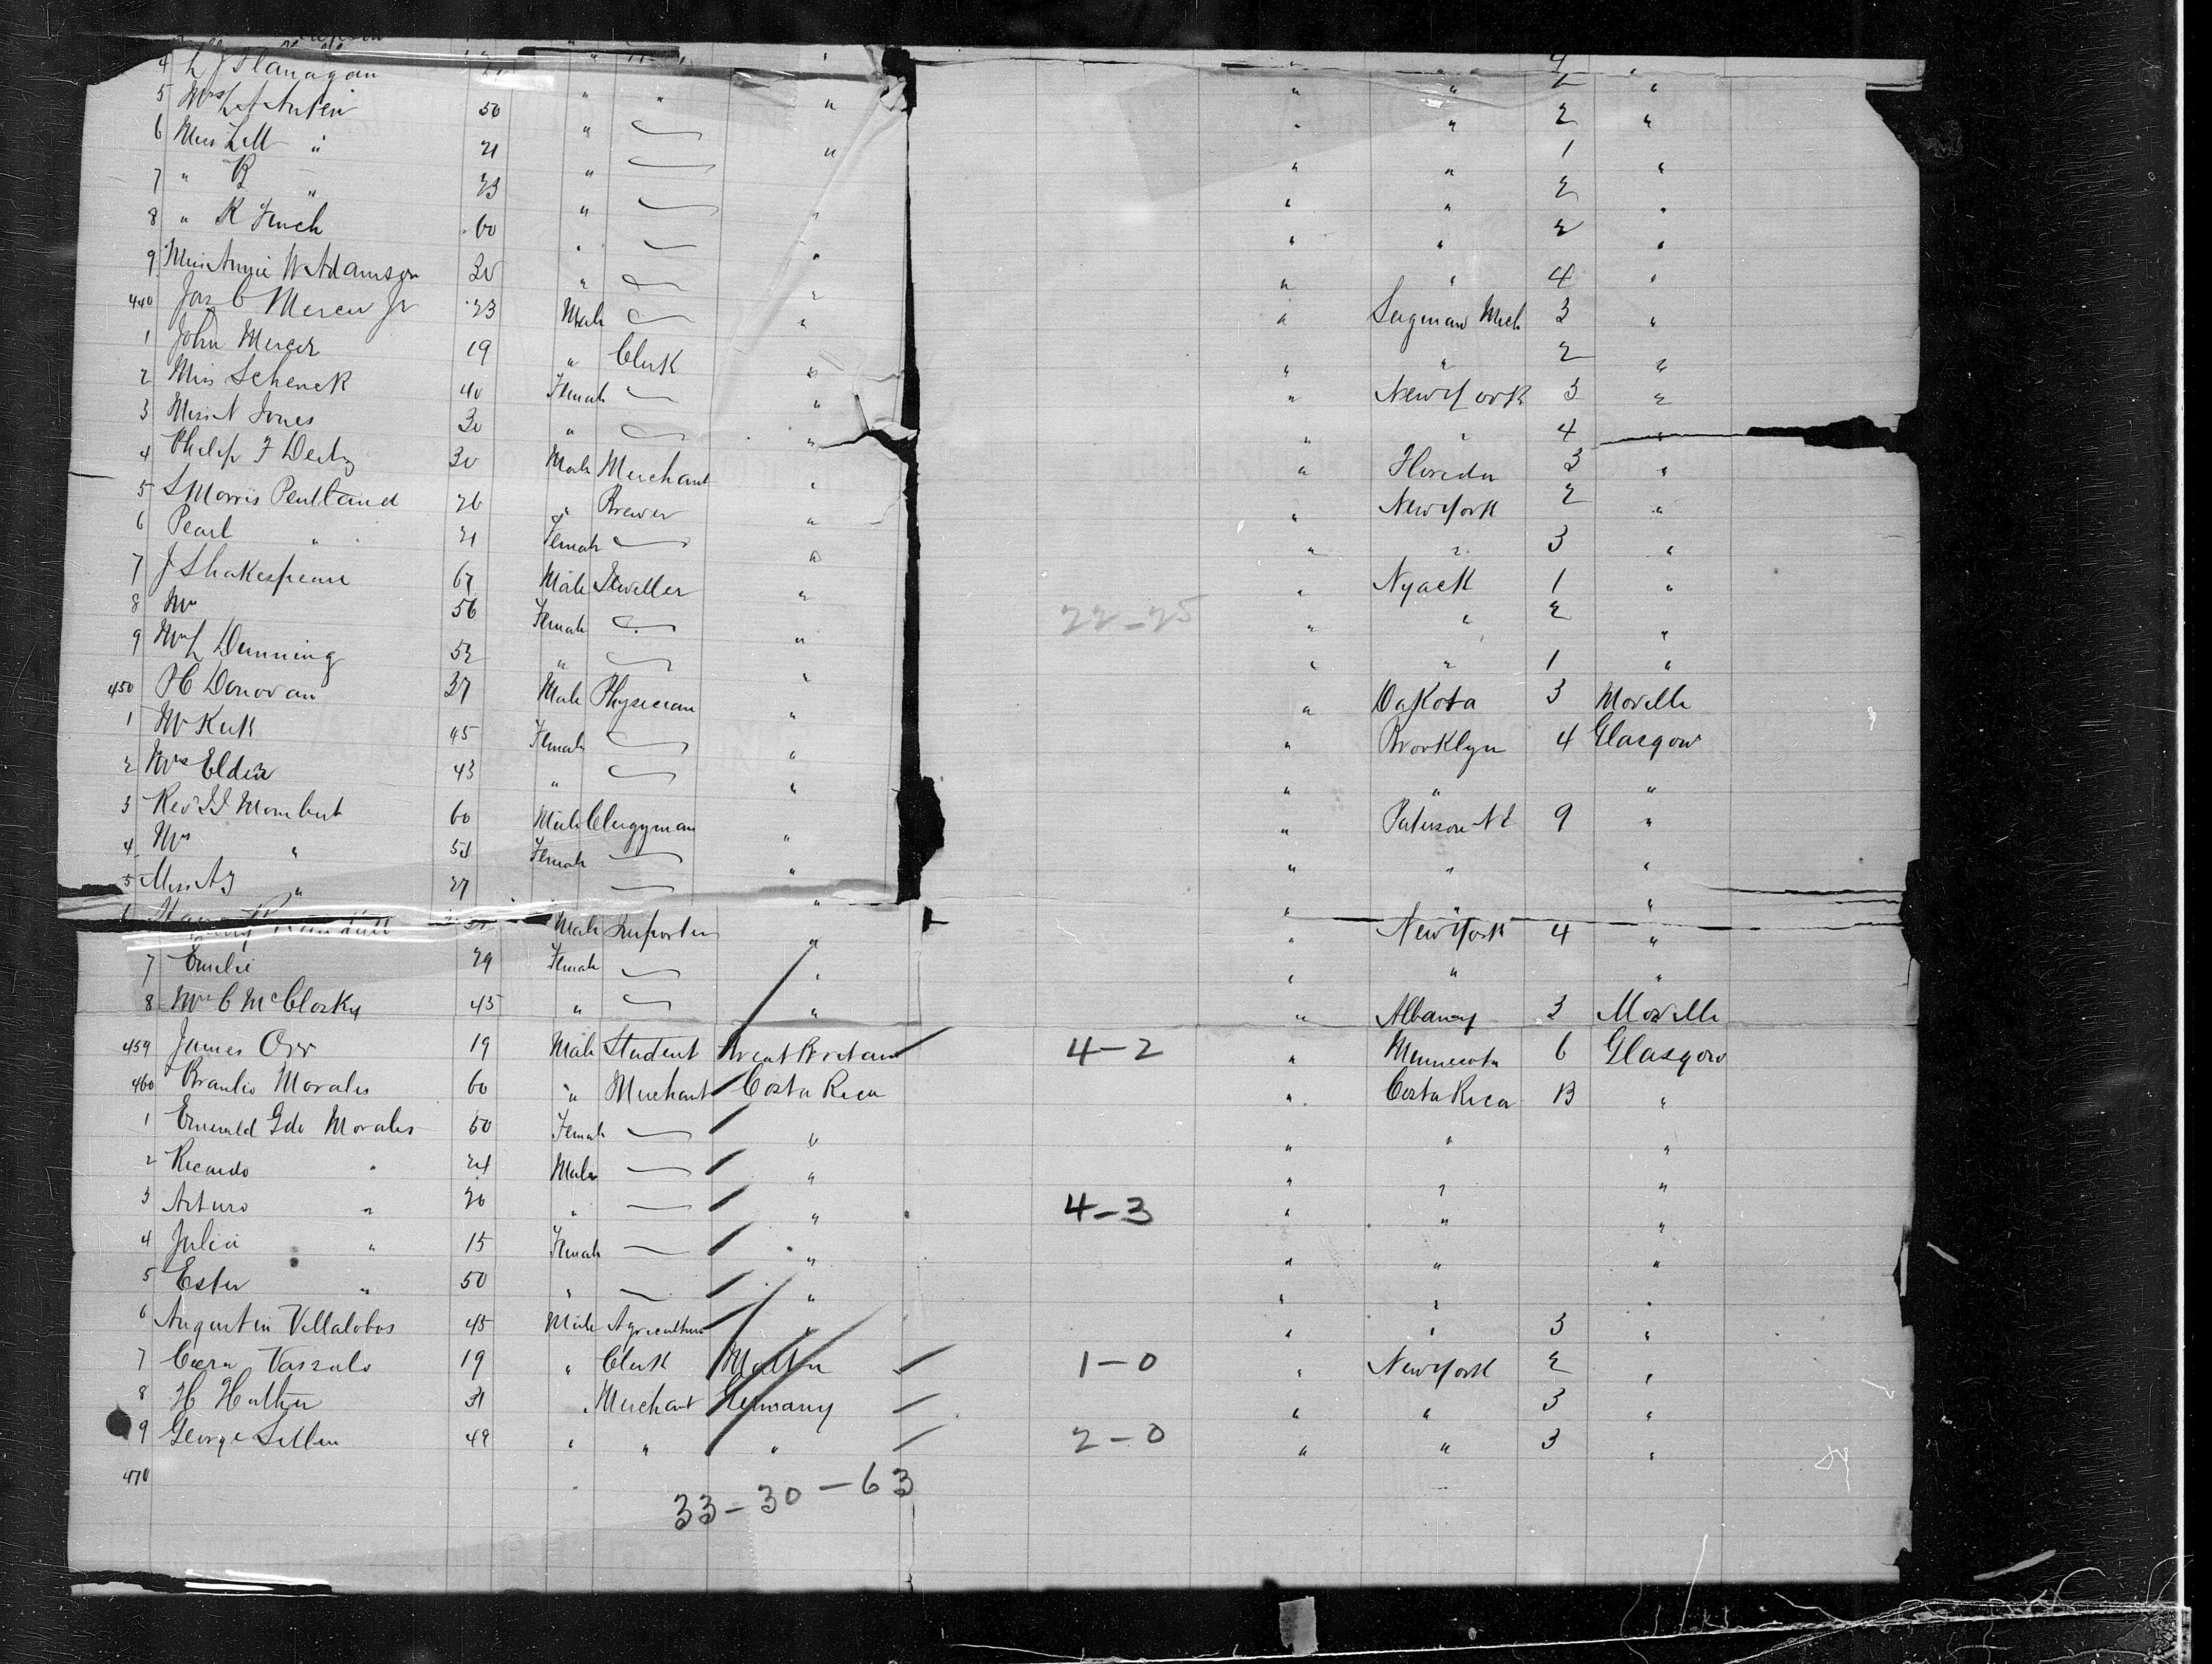 4 L J Flanagan " " " " 4 "
5 Mrs L A Auten 50 " " " " " 2 "
6 Miss Lell " 21 " — " " " 2 "
7 " B " 23 " — " " 1 "
8 " R Finch 60 " — " " " 2 "
9 Miss Annie W Adamson 30 " — " " " 4 "
440 Jas C Mercer Jr 23 Male — " " Saginaw Mich 3 "
1 John Mercer 19 " Clerk " " " 2 "
2 Miss Schenck 40 Female — " " New York 3 "
3 Miss N Jones 30 " — " " " 4 "
4 Philip F Deitz 30 Male Merchant " " Florida 3 "
5 S Morris Pentland 26 " Brewer " " New York 2 "
6 Pearl " 21 Female — " " " 3 "
7 J Shakespeare 67 Male Jeweller " " Nyack 1 "
8 Mrs 56 Female — " 22-25 " " 2 "
9 Mrs L Dunning 52 " — " " " 1 "
450 H C Donovan 37 Male Physician " " Dakota 3 Moville
1 Mrs Kirk 45 Female — " " Brooklyn 4 Glasgow
2 Mrs Elder 43 " — " " " "
3 Rev J I Mombert 60 Male Clergyman " " Paterson N J 9 "
4 Mrs " 54 Female — " " " "
5 Miss A J " 27 — " " " "
6 Male Importer " " New York 4 "
7 Emelie 29 Female — " " " "
8 Mrs C McCloskey 45 " — " " Albany 3 Moville
459 James Orr 19 Male Student Great Britain 4-2 " Minnesota 6 Glasgow
460 Braulio Morales 60 " Merchant Costa Rica " Costa Rica 13 "
1 Esmerald Gda Morales 50 Female — " " " "
2 Ricardo " 24 Male — " " " "
3 Arturo " 20 " — " 4-3 " " "
4 Julia " 15 Female — " " " "
5 Ester " 50 " — " " " "
6 Augustin Villalobos 45 Male Agriculture " " " 3 "
7 Vassalo 19 " Clerk Malta 1-0 " New York 2 "
8 H Huther 31 " Merchant Germany " " 3 "
9 George Sellen 49 " " " 2-0 " " 3 "
470
33-30-63